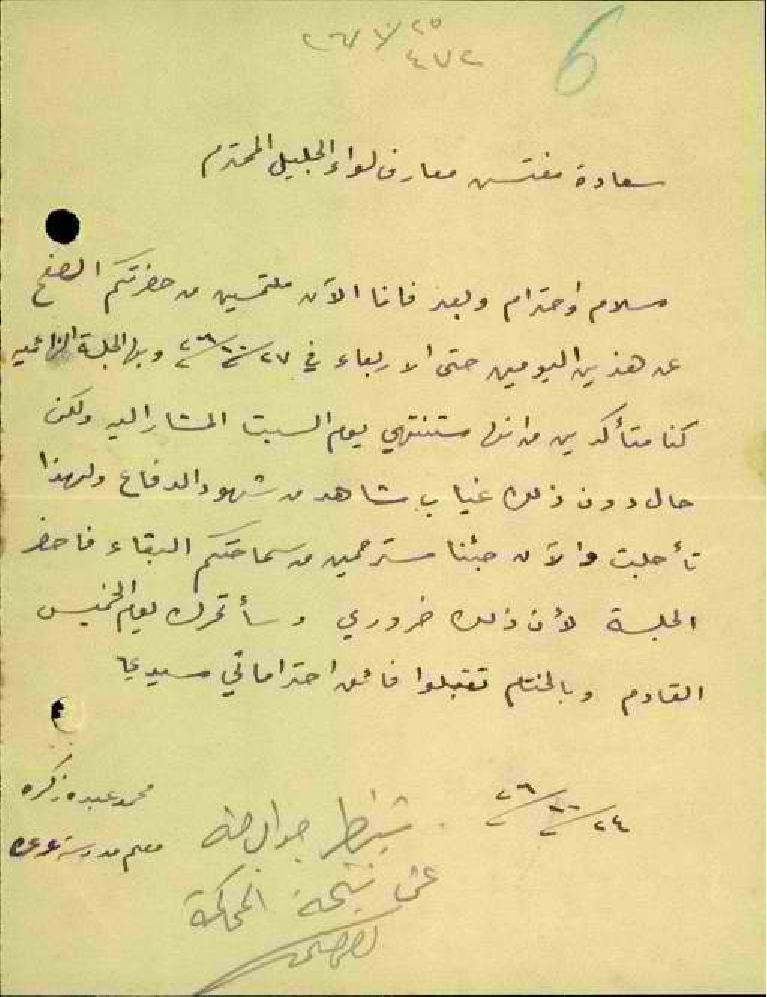 6
٤٧٢
سعادة مفتش معارف لواء الجليل المحترم
سلام واحترام وبعد فانا الآن ملتمسين من حضرتكم الصفح
عن هذين اليومين حتى الاربعاء في ٢٧ وبها الجلسة
كنا متأكدين من انها ستنتهي يوم السبت المشار اليه ولكن
حال دون ذلك غياب شاهد من شهود الدفاع ولهذا
تأجلت والآن جئنا مسترحمين من سماحتكم البقاء فاحضر
الجلسة لأن ذلك ضروري وسأتحرك يوم الخميس
القادم وبالختام تقبلوا فائق احتراماتي سيدي
٢٤
محمد عبده
معلم مدرسة عرعره
ينتظر جوابا منه
عن نتيجة المحاكمة